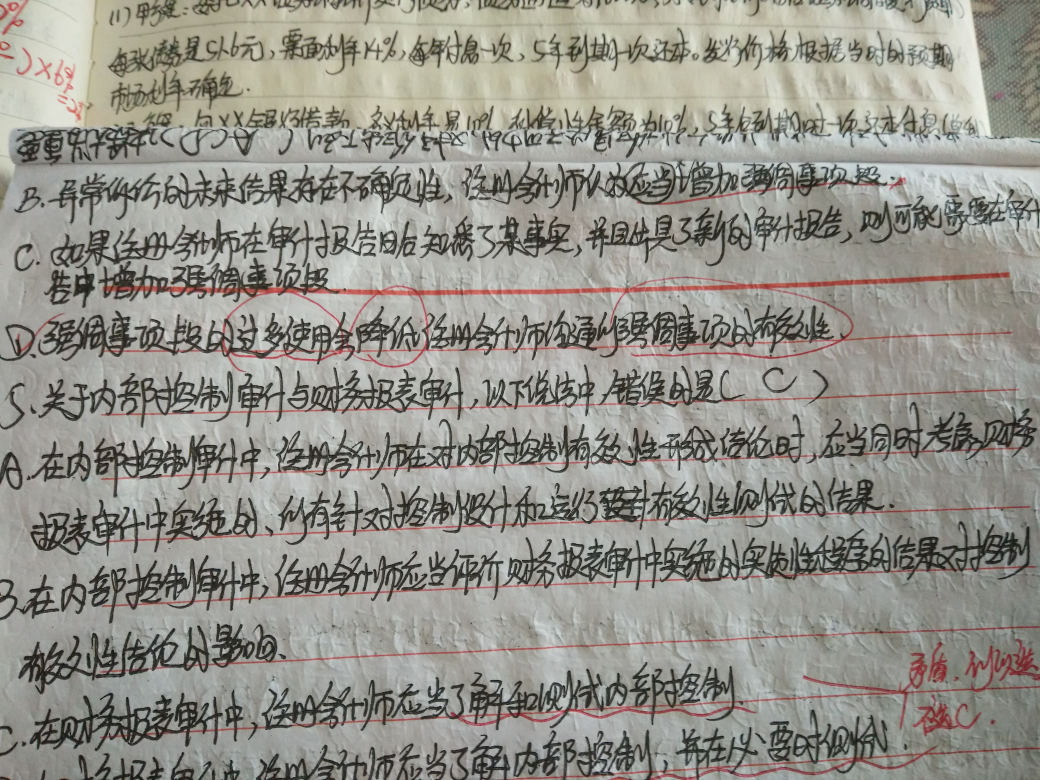 每张售价是516元，票面利率14%，每年付息一次，5年到期一次还本。发行价格根据当时的预期
市场利率确定.
B.异常诉讼的未来结果存在不确定性，注册会计师认为应当增加强调事项段.
C.如果注册会计师在审计报告日后知悉了某事实，并且出具了新的审计报告，则可能需要在审计
告中增加强调事项段.
D.强调事项段的过多使用会降低注册会计师沟通所强调事项的有效性.
5.关于内部控制审计与财务报表审计，以下说法中，错误的是( C )
A.在内部控制审计中，注册会计师在对内部控制有效性形成结论时，应当同时考虑财务
报表审计中实施的、所有针对控制设计和运行有效性测试的结果.
B.在内部控制审计中，注册会计师应当评价财务报表审计中实施的实质性程序的结果对控制
有效性结论的影响.
C.在财务报表审计中，注册会计师应当了解和测试内部控制
矛盾.
选C.
财务报表审计中，注册会计师应当了解内部控制，并在必要时测试.